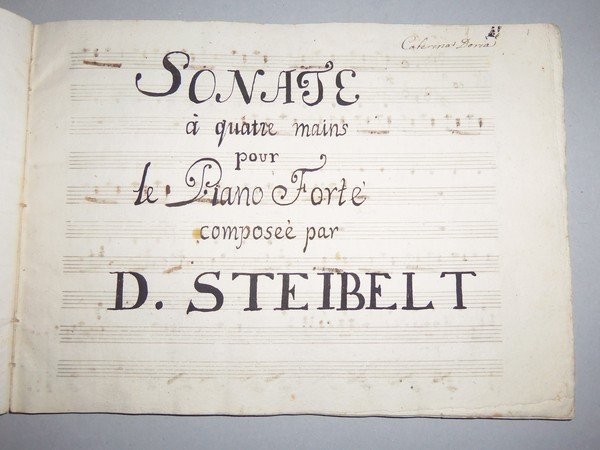 Caterina Doria
SONATE
à quatre mains
pour
le Piano Forte
composeè par
D. STEIBELT